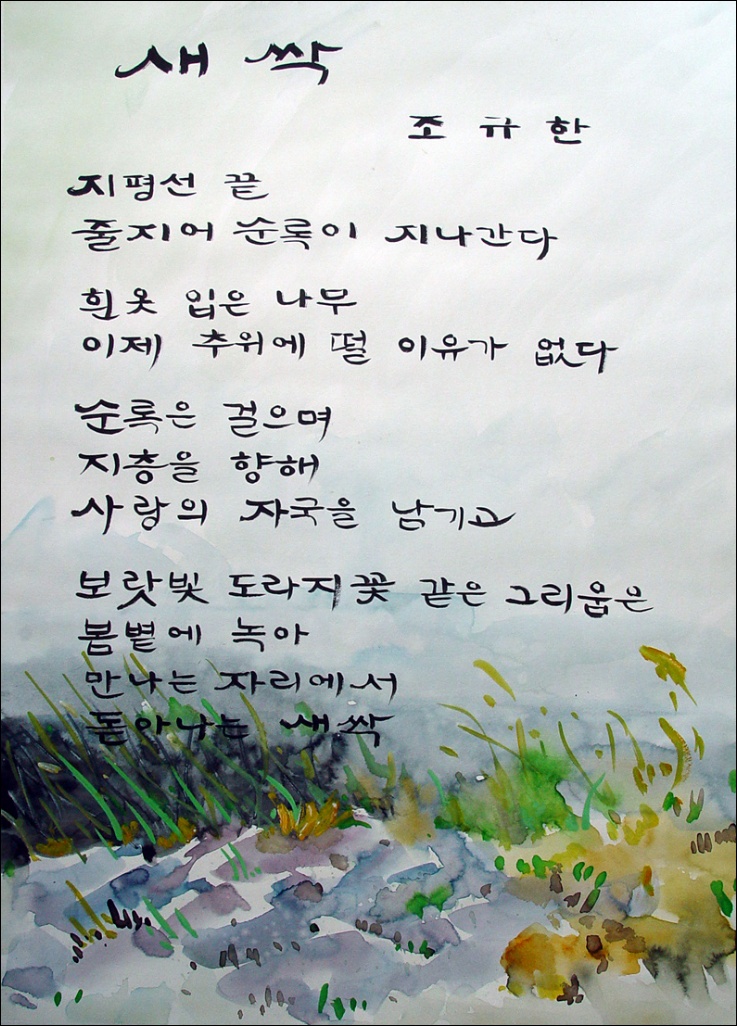 새 싹
조 규 한
지평선 끝
줄지어 순록이 지나간다
흰 옷 입은 나무
이제 추위에 떨 이유가 없다
순록은 걸으며
지층을 향해
사랑의 자국을 남기고
보랏빛 도라지꽃 같은 그리움은
봄볕에 녹아
만나는 자리에서
돋아나는 새싹